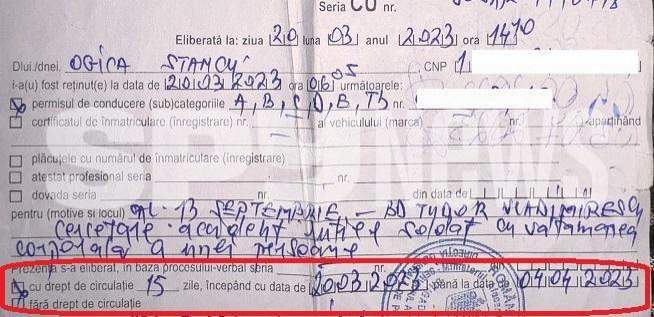 Seria CU nr.
Eliberată la: ziua 20 luna 03 anul 2023 ora 14 10
Dlui./dnei. OGICA STANCU , CNP 1
i-a(u) fost reținut(e) la data de 20 03 2023 ora 06 05 următoarele:
permisul de conducere (sub)categoriile A, B, C, D, E, Tb nr.
certificatul de înmatriculare (înregistrare) nr. al vehiculului (marca) nr. aparținând
plăcuțele cu numărul de înmatriculare (înregistrare)
atestat profesional seria nr.
dovada seria nr. din data de
pentru (motive și locul) 13 SEPTEMBRIE – BD TUDOR VLADIMIRESCU
cercetare accident rutier soldat cu vatamarea
corporala a unei persoane
Prezenta s-a eliberat, în baza procesului-verbal seria nr.
cu drept de circulație 15 zile, începând cu data de 20 03 2023 până la data 04 04 2023
fără drept de circulație
SPYNEWS